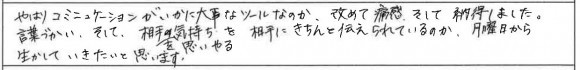 やはりコミニュケーションがいかに大事なツールなのか、改めて痛感そして納得しました。
言葉づかい、そして、相手の気持ちを相手にきちんと伝えられているのか、月曜日から
を思いやる
生かしていきたいと思います。